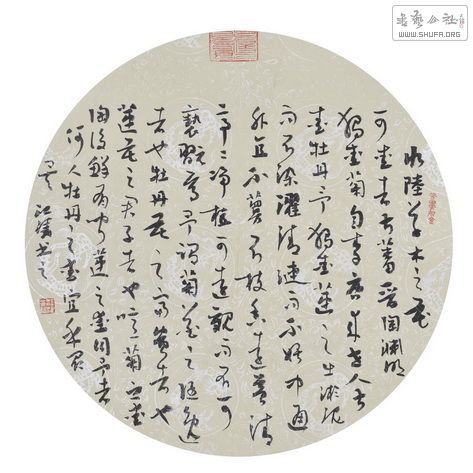 水陸草木之花
可愛者甚蕃晉陶淵明
獨愛菊自李唐來世人甚
愛牡丹予獨愛蓮之出淤泥
而不染濯清漣而不妖中通
外直不蔓不枝香遠益清
亭亭净植可遠觀而不可
褻翫焉予謂菊花之隱逸
者也牡丹花之富貴者也
蓮花之君子者也噫菊之愛
陶後鮮有聞蓮之愛同予者
何人牡丹之愛宜乎眾
矣 書之
書藝公社
WWW.SHUFA.ORG